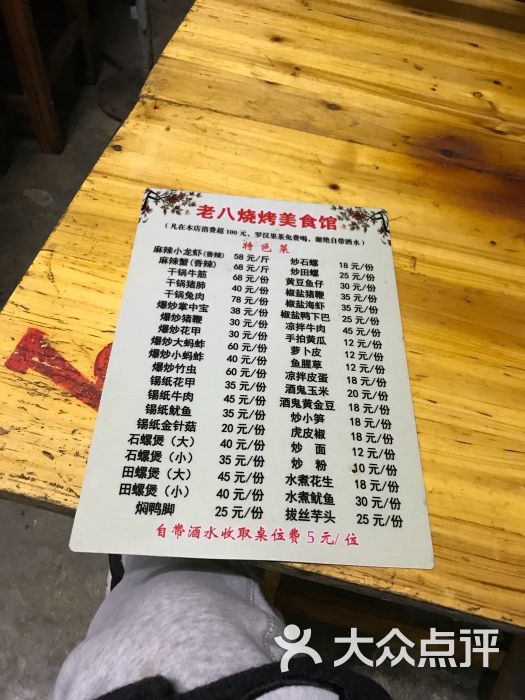 老八烧烤美食馆
（凡在本店消费超100元，罗汉果茶免费喝，谢绝自带酒水）
特色菜
麻辣小龙虾(香辣) 58元/斤
麻辣蟹(香辣) 68元/斤
干锅牛筋 68元/份
干锅猪肺 40元/份
干锅兔肉 78元/份
爆炒掌中宝 38元/份
爆炒猪鞭 30元/份
爆炒花甲 30元/份
爆炒大蚂蚱 60元/份
爆炒小蚂蚱 40元/份
爆炒竹虫 60元/份
锡纸花甲 35元/份
锡纸牛肉 45元/份
锡纸鱿鱼 38元/份
锡纸金针菇 20元/份
石螺煲（大） 40元/份
石螺煲（小） 35元/份
田螺煲（大） 45元/份
田螺煲（小） 40元/份
焖鸭脚 25元/份
炒石螺 18元/份
炒田螺 25元/份
黄豆鱼仔 30元/份
椒盐猪鞭 35元/份
椒盐海虾 35元/份
椒盐鸭下巴 25元/份
凉拌牛肉 45元/份
手拍黄瓜 12元/份
萝卜皮 12元/份
鱼腥草 12元/份
凉拌皮蛋 18元/份
酒鬼玉米 20元/份
酒鬼黄金豆 18元/份
炒小笋 18元/份
虎皮椒 12元/份
炒面 12元/份
炒粉 10元/份
水煮花生 18元/份
水煮鱿鱼 30元/份
拔丝芋头 25元/份
自带酒水收取桌位费5元/位
大众点评